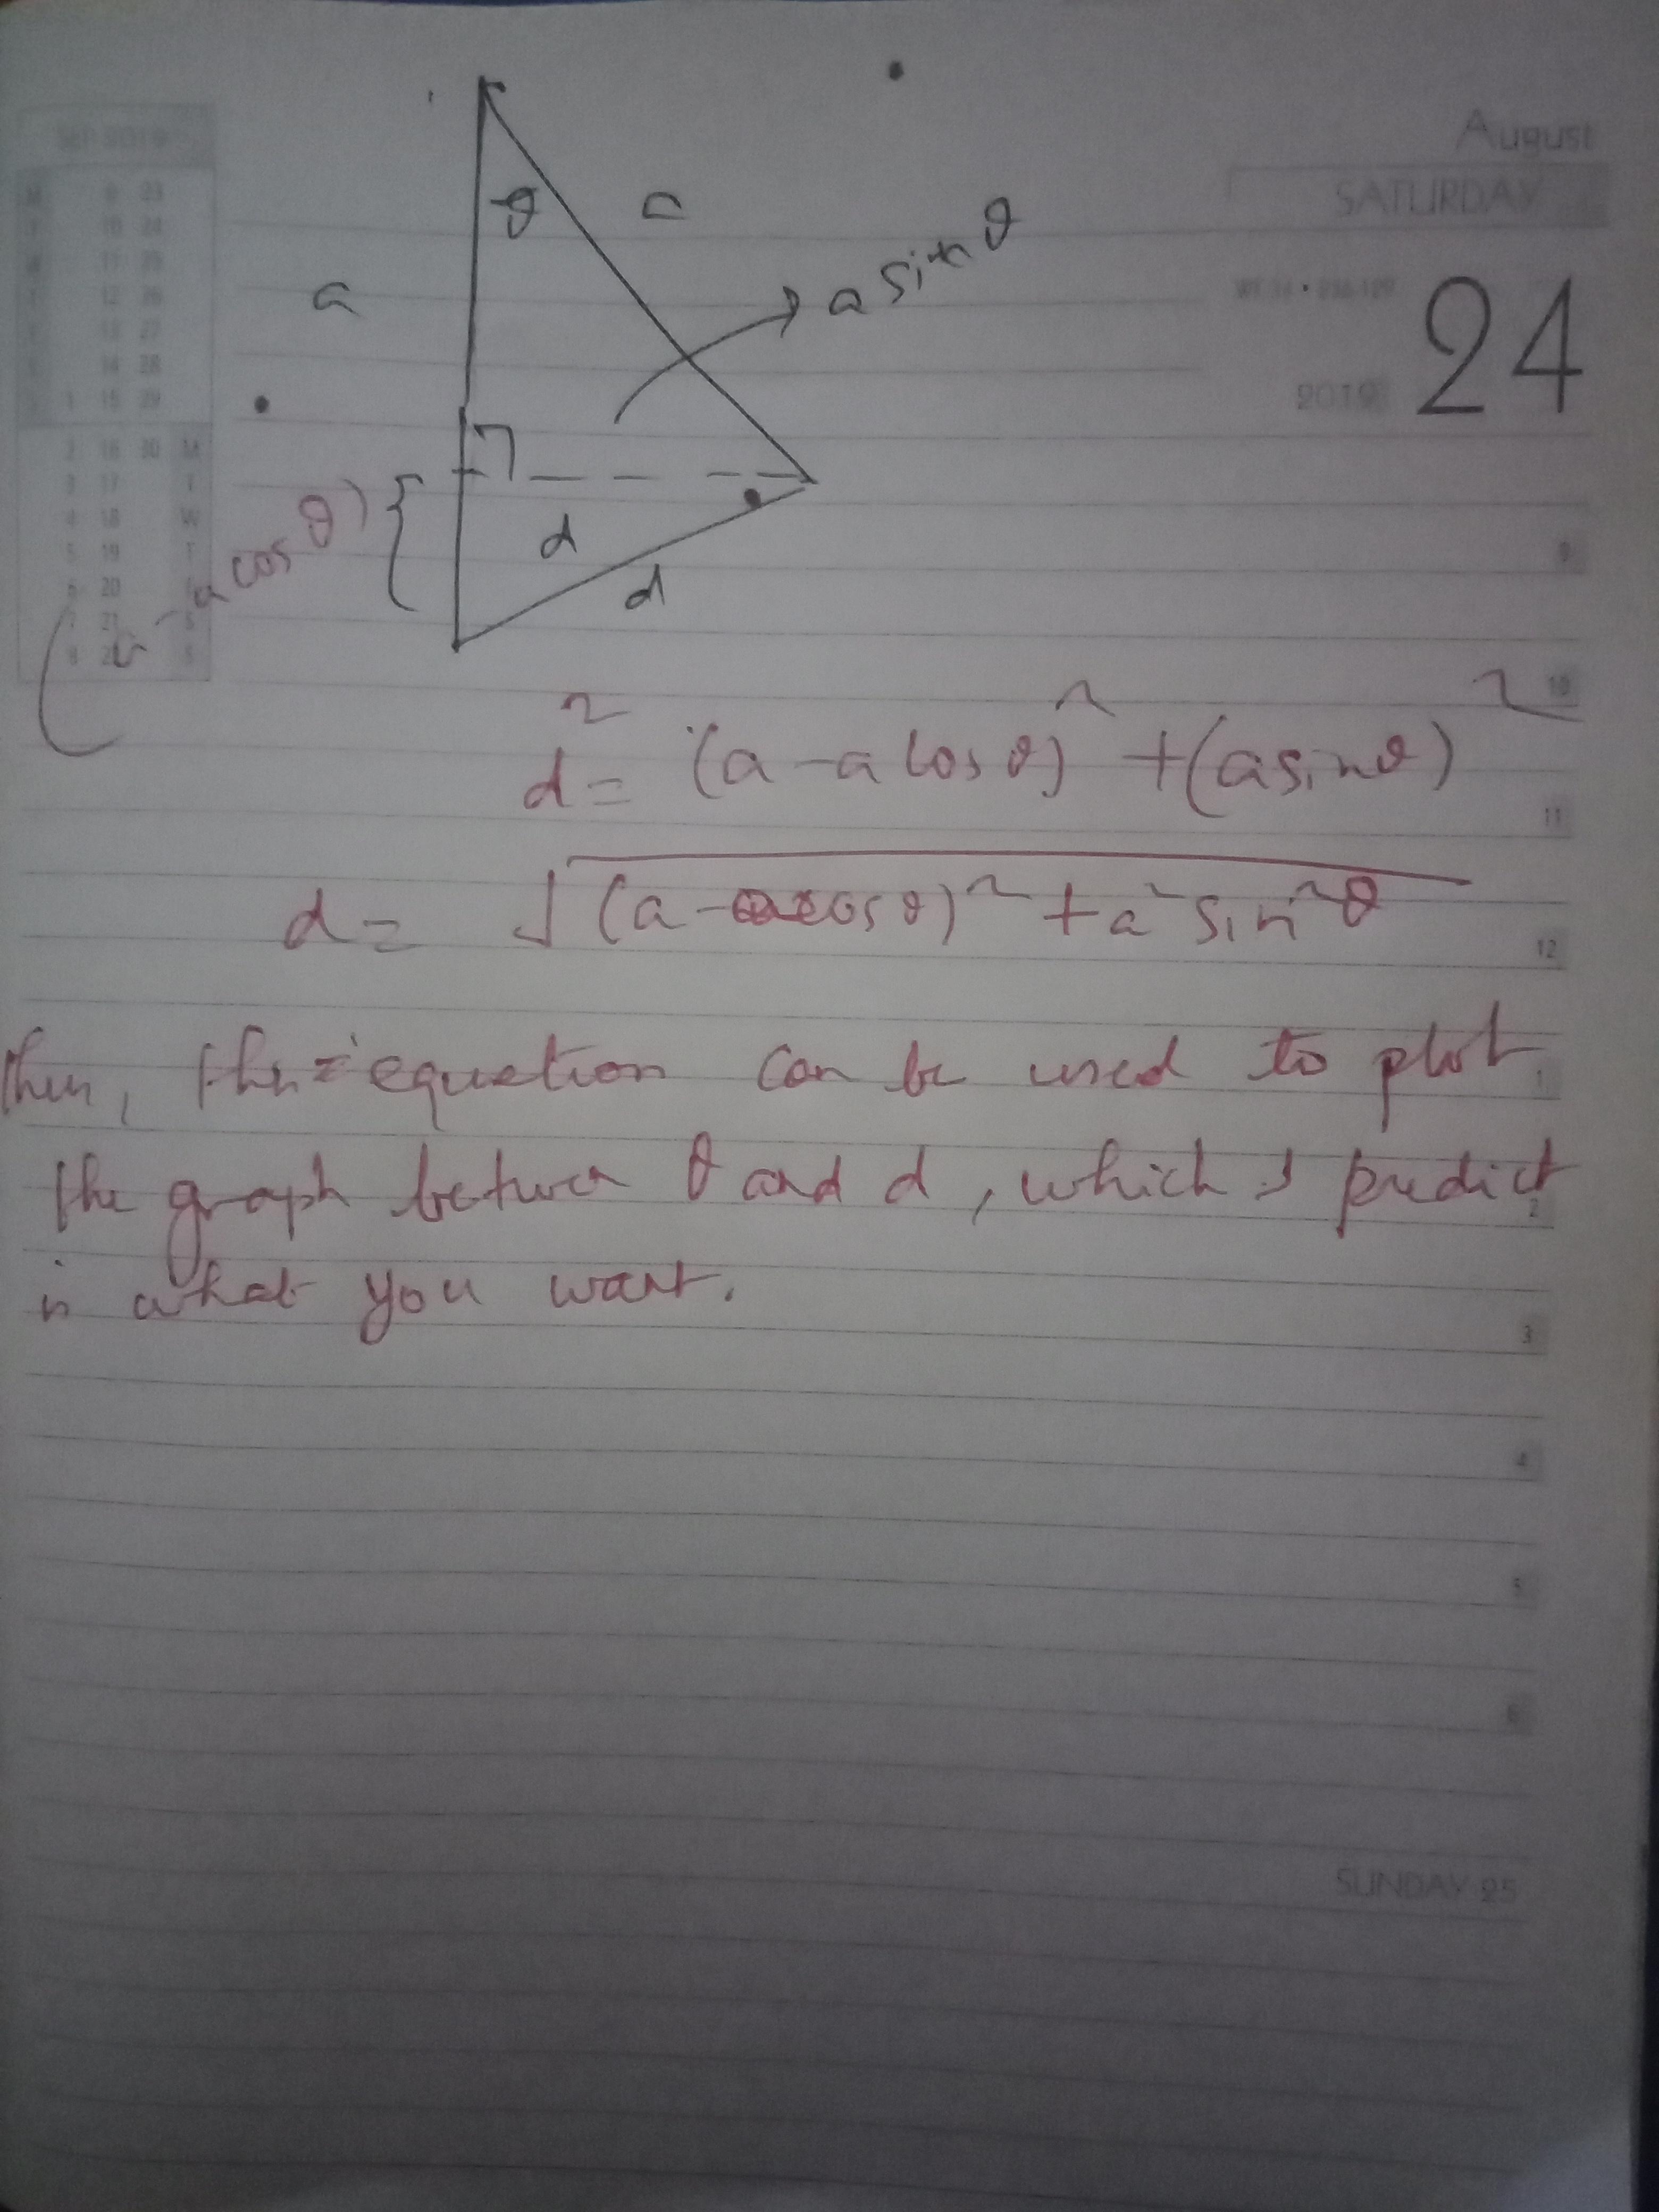 August
SATURDAY
24
2019
θ
a
a
a sin θ
a cos θ)
d
d
d² = (a - a cos θ)² + (a sin θ)²
d = √(a - a cos θ)² + a² sin² θ
Then, the equation can be used to plot
the graph between θ and d, which I predict
is what you want.
9
10
11
12
1
2
3
4
5
6
SUNDAY 25